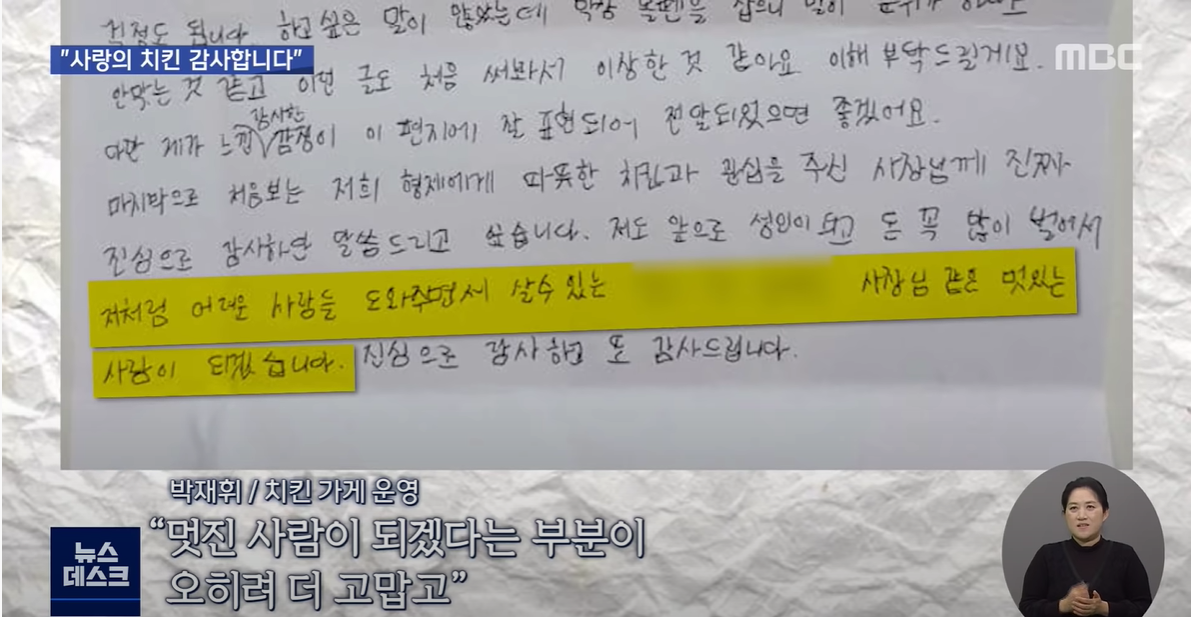 걱정도 됩니다. 하고싶은 말이 많았는데 막상 볼펜을 잡으니 말이
"사랑의 치킨 감사합니다"
MBC
안맞는 것 같고 이런 글도 처음 써봐서 이상한 것 같아요 이해 부탁드릴게요.
다만 제가 느낀 감사한 감정이 이 편지에 잘 표현되어 전달되었으면 좋겠어요.
마지막으로 처음보는 저희 형제에게 따뜻한 치킨과 관심을 주신 사장님께 진짜
진심으로 감사하단 말씀드리고 싶습니다. 저도 앞으로 성인이 되고 돈 꼭 많이 벌어서
저처럼 어려운 사람들 도와주면서 살수있는 사장님 같은 멋있는
사람이 되겠습니다. 진심으로 감사하고 또 감사드립니다.
박재휘 / 치킨 가게 운영
"멋진 사람이 되겠다는 부분이
오히려 더 고맙고"
뉴스
데스크